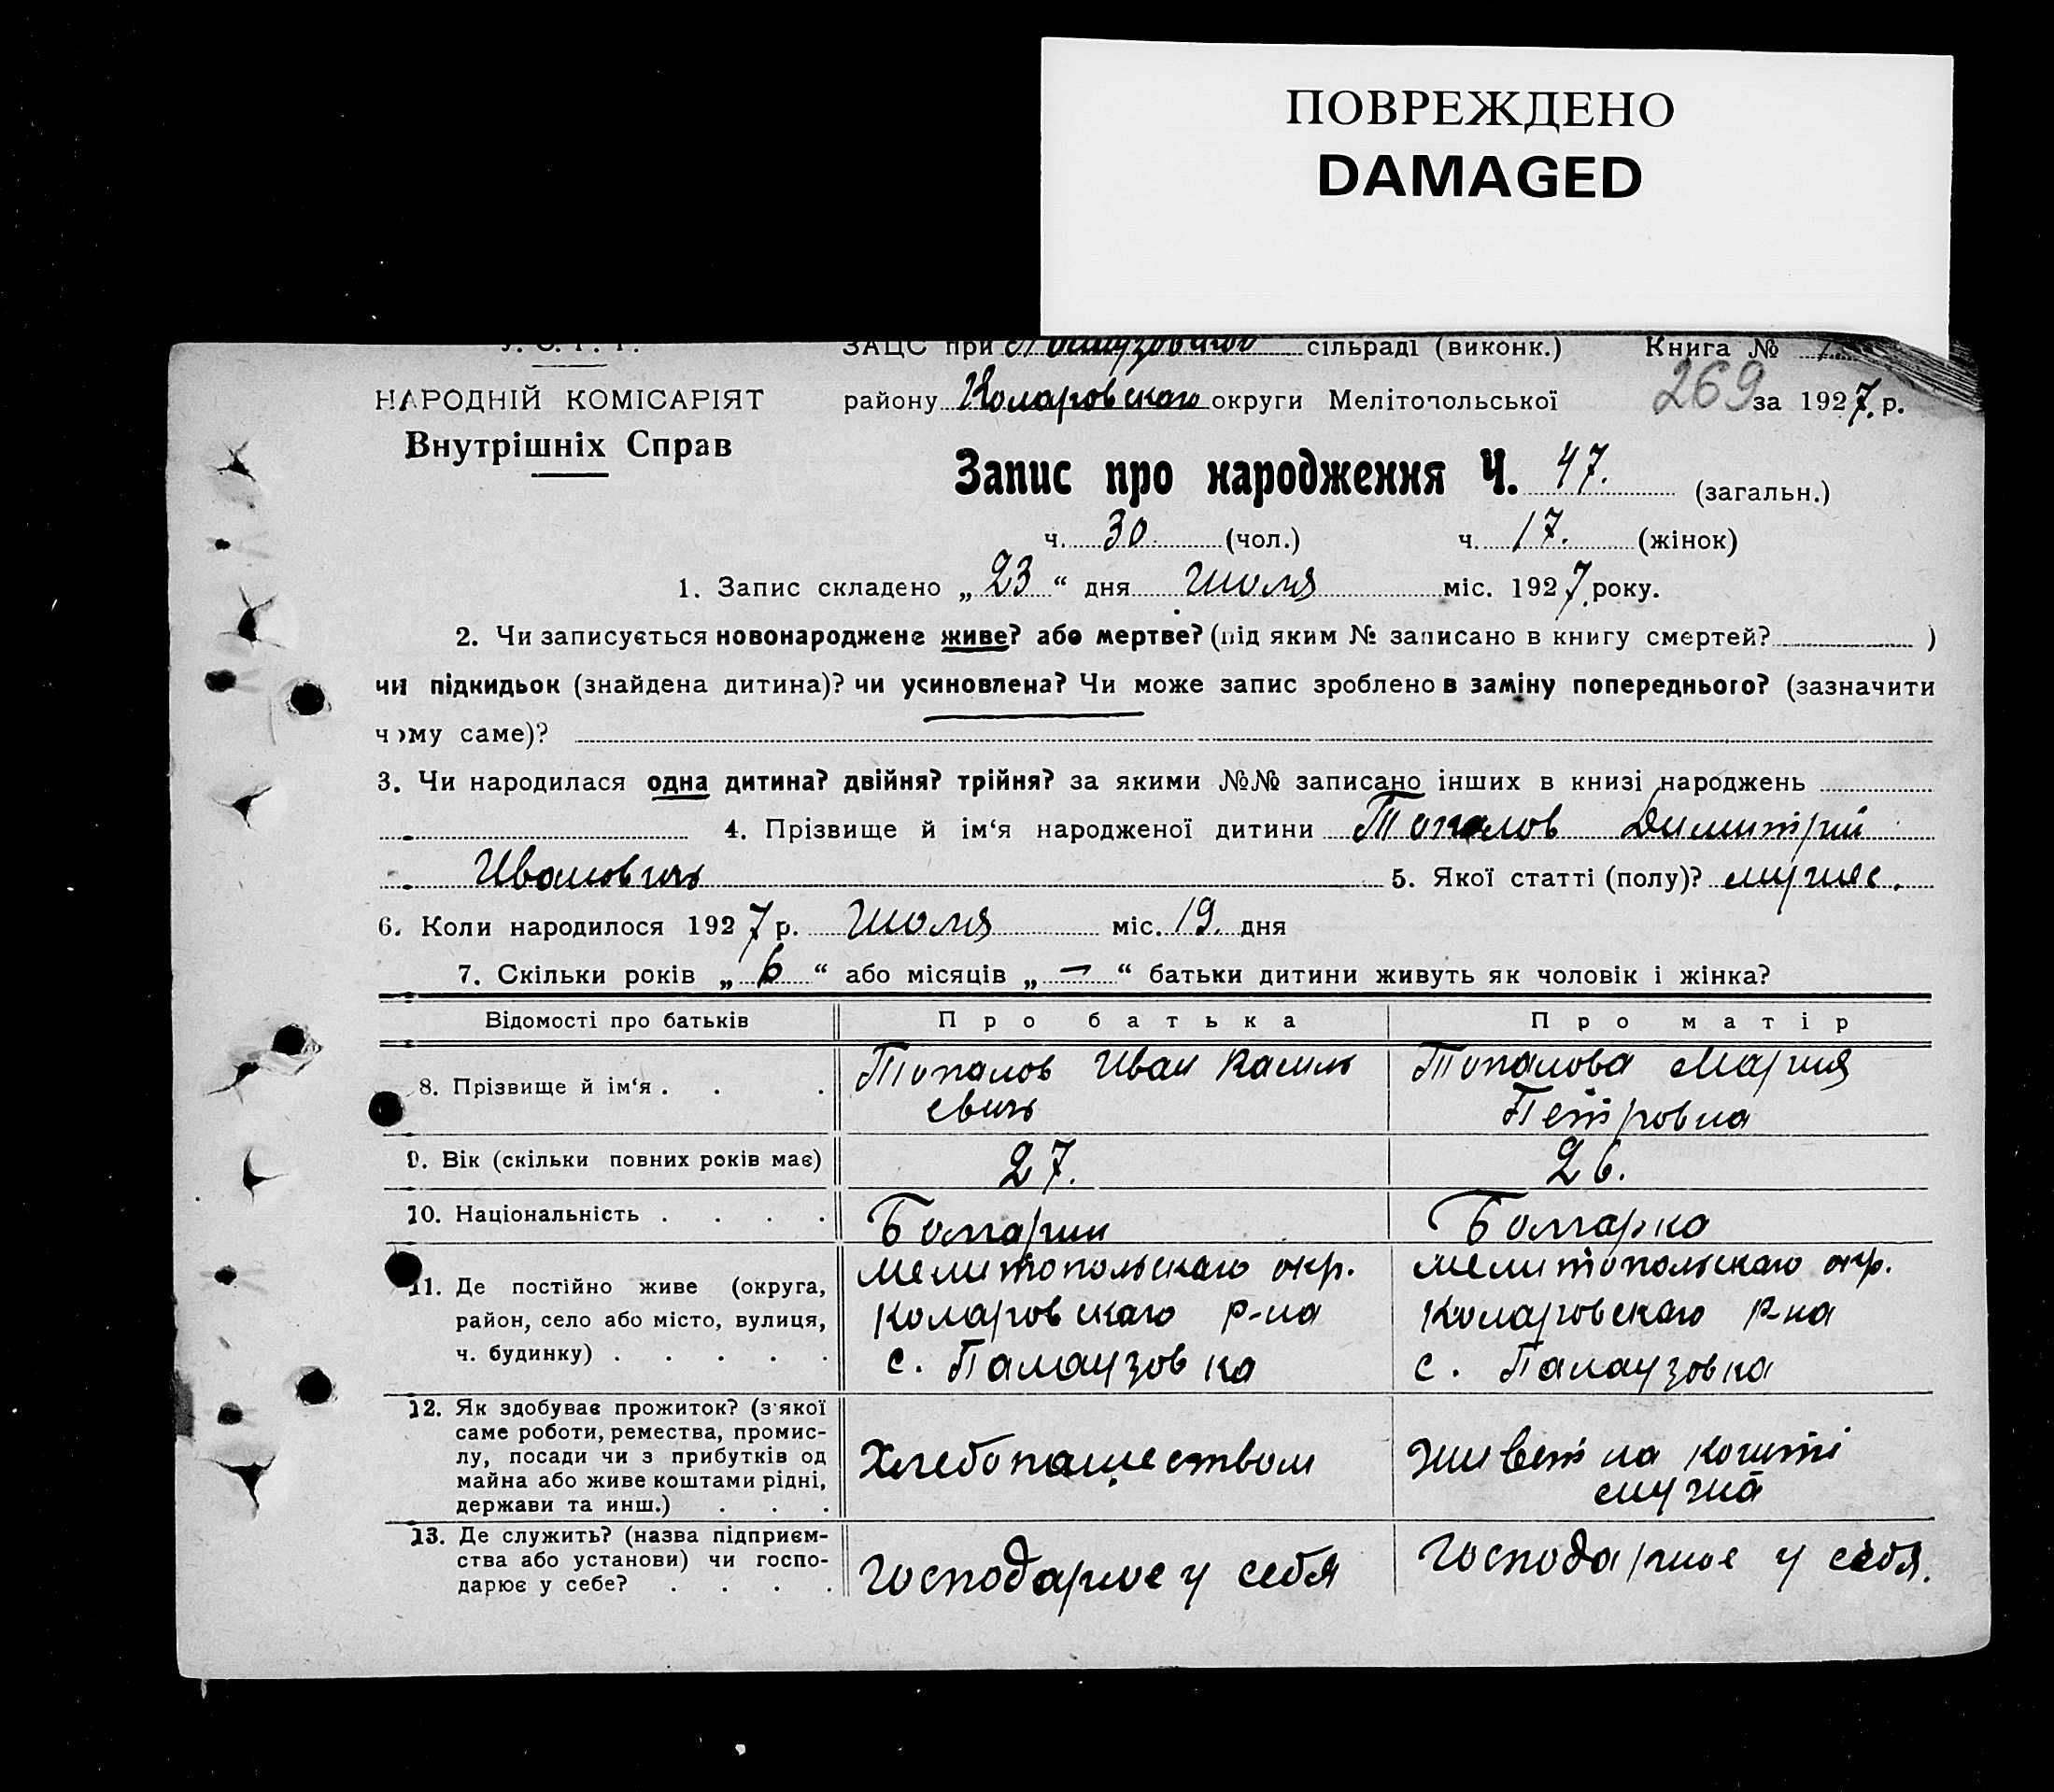 ПОВРЕЖДЕНО
DAMAGED
У. С. Р. Р.
ЗАЦС при Палаузовской сільраді (виконк.) Книга № 1
НАРОДНІЙ КОМІСАРІЯТ
району Коларовскаго округи Мелітопольської 269 за 1927 р.
Внутрішніх Справ
Запис про народження Ч. 47. (загальн.)
ч. 30. (чол.) ч. 17. (жінок)
1. Запис складено „23“ дня Июля міс. 1927 року.
2. Чи записується новонароджене живе? або мертве? (під яким № записано в книгу смертей? )
чи підкидьок (знайдена дитина)? чи усиновлена? Чи може запис зроблено в заміну попереднього? (зазначити
чому саме)?
3. Чи народилася одна дитина? двійня? трійня? за якими №№ записано інших в книзі народжень
4. Прізвище й ім‘я народженої дитини Топалов Димитрий
Ивановичъ 5. Якої статті (полу)? мужес.
6. Коли народилося 1927 р. Июля міс. 19. дня
7. Скільки років „6“ або місяців „—“ батьки дитини живуть як чоловік і жінка?
Відомості про батьків Про батька Про матір
8. Прізвище й ім‘я . . . Топалов Иван Топалова Мария
евичъ Петровна
9. Вік (скільки повних років має) 27. 26.
10. Національність . . . . Болгарин Болгарка
11. Де постійно живе (округа, Мелитопольскаго окр. Мелитопольскаго окр.
район, село або місто, вулиця, Коларовскаго р-на Коларовскаго р-на
ч. будинку) . . . . . с. Палаузовка с. Палаузовка
12. Як здобуває прожиток? (з'якої
саме роботи, ремества, промис-
лу, посади чи з прибутків од Хлебопашеством Живет на кошті
майна або живе коштами рідні, мужа
держави та инш.) . . .
13. Де служить? (назва підприєм-
ства або установи) чи госпо- Господарює у себя Господарює у себя.
дарює у себе? . . . .